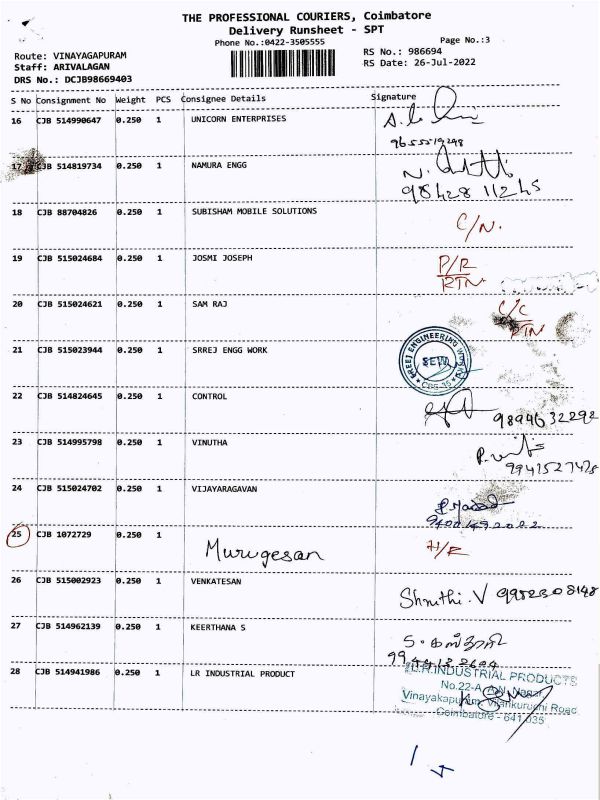 THE PROFESSIONAL COURIERS, Coimbatore
Delivery Runsheet - SPT
Phone No.:0422-3505555
Page No.:3
Route: VINAYAGAPURAM
RS No.: 986694
Staff: ARIVALAGAN
RS Date: 26-Jul-2022
DRS No.: DCJB98669403
S No Consignment No Weight PCS Consignee Details Signature
16 CJB 514990647 0.250 1 UNICORN ENTERPRISES
9655519298
17 CJB 514819734 0.250 1 NAMURA ENGG
98428 11245
18 CJB 88704826 0.250 1 SUBISHAM MOBILE SOLUTIONS C/N.
19 CJB 515024684 0.250 1 JOSMI JOSEPH P/R
RTN
20 CJB 515024621 0.250 1 SAM RAJ C/C
RTN
21 CJB 515023944 0.250 1 SRREJ ENGG WORK
SREEJ ENGINEERING WORKS
SEW
CBE-35
22 CJB 514824645 0.250 1 CONTROL
9894632292
23 CJB 514995798 0.250 1 VINUTHA
9941527428
24 CJB 515024702 0.250 1 VIJAYARAGAVAN
25 CJB 1072729 0.250 1 Murugesan H/R
26 CJB 515002923 0.250 1 VENKATESAN
Shruthi. V 9952308148
27 CJB 514962139 0.250 1 KEERTHANA S
28 CJB 514941986 0.250 1 LR INDUSTRIAL PRODUCT
L.R.INDUSTRIAL PRODUCTS
No.22-A, A.N. Nagar
Vinayakapuram, Vilankuruchi Road
Coimbatore - 641 035